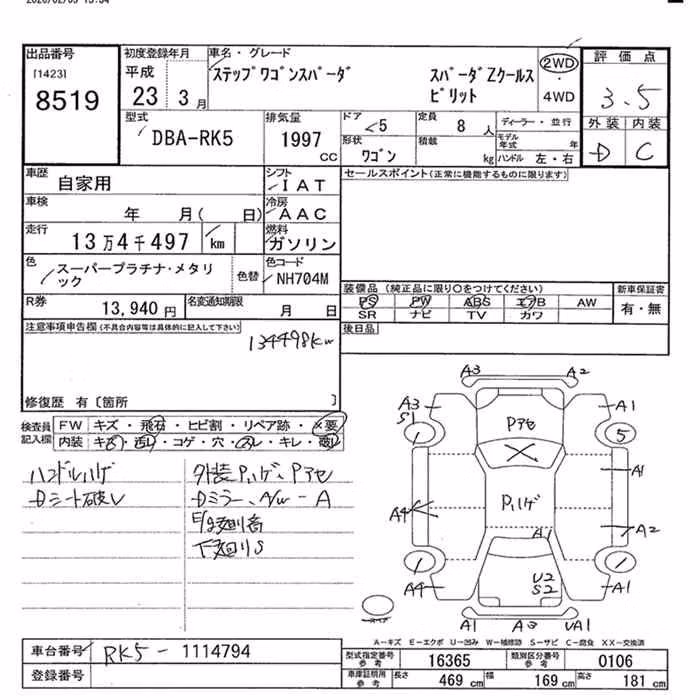 出品番号
[1423]
8519
初度登録年月
平成
23 3月
車名・グレード
ステップワゴンスパーダ スパーダZクールス
ピリット
2WD
4WD
評価点
3.5
外装 内装
D C
型式
DBA-RK5
排気量
1997
CC
ドア
5
定員
8人
ディーラー・並行
モデル年式 年
形状
ワゴン
積載
kg
ハンドル 左・右
車歴
自家用
シフト
IAT
セールスポイント(正常に機能するものに限ります)
車検
年 月( 日)
冷房
AAC
走行
13万4千497
km
燃料
ガソリン
色
スーパープラチナ・メタリ
ック
色替
色コード
NH704M
装備品(純正品に限り○をつけてください)
PS PW ABS エアB AW
SR ナビ TV カワ
新車保証書
有・無
R券
13,940円
名変通知期限
月 日
後日品
注意事項申告欄(不具合内容等は具体的に記入して下さい)
134498Km
修復歴 有〔箇所 〕
検査員
記入欄
FW キズ・飛石・ヒビ割・リペア跡・×要
内装
ハンドルハゲ
Dシート破レ
外装Pハゲ、Pアセ
Dミラー、A/W-A
下廻りS
A3 A2
A3
S1
A1
Pアセ
5
A1
Pハゲ
A4
A2
A1
A4
U2
S2
A1
A1 A3 UA1
スペア
A-キズ E-エクボ U-凹み W-補修跡 S-サビ C-腐食 XX-交換済
車台番号
RK5-1114794
登録番号
型式指定番号
参考
16365
類別区分番号
参考
0106
車庫証明用
参考
長さ
469 cm
幅
169 cm
高さ
181 cm